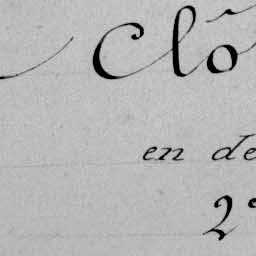 Clô
en de
2e